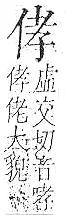 侾
虛交切音哮
侾佬大貌